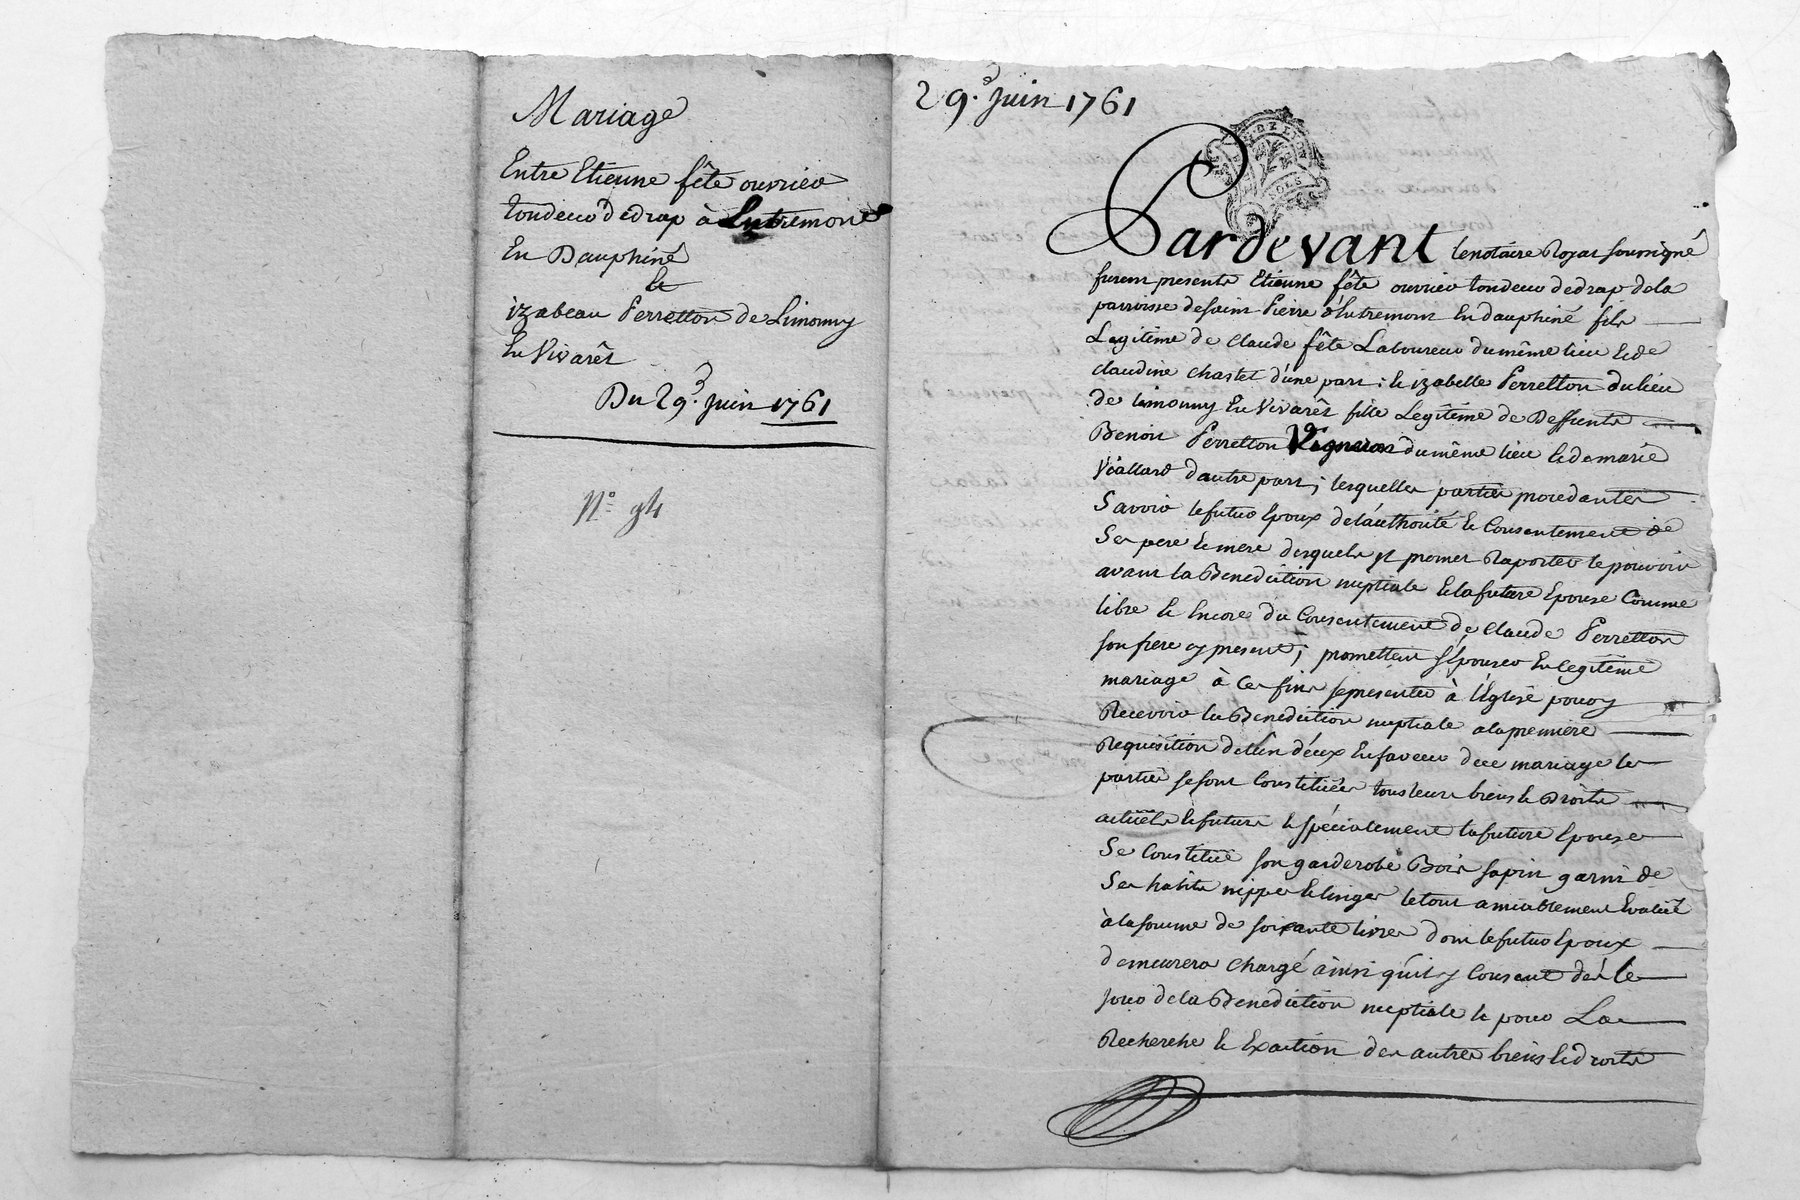 Mariage
Entre Etienne fête ouvrier
tondeur de drap à Entremont
En Dauphiné
Et
izabeau Ferretton de Limonny
En Vivarêt
Du 29.e juin 1761
N.o 94
29.e juin 1761
Pardevant le notaire Royal soussigné
furent presents Etienne fête ouvrier tondeur de drap de la
parroisse de saint Pierre d'Entremont En dauphiné fils
Legitême de Claude fête Laboureur du même lieu Et de
claudine chastet d'une part : Et izabelle Ferretton du lieu
de Limonny En Vivarêt fille Legitême de Deffunts
Benoit Ferretton Vigneron du même lieu Et de marie
Viallard d'autre part ; lesquelles parties procedantes
Savoir le futur Epoux de l'authorité Et Consentement de
Ses pere Et mere desquels il promet Raporter le pouvoir
avant la Benediction nuptiale Et la future Epouse Comme
libre Et Encore du Consentement de Claude Ferretton
son frere cy present ; promettent s'Epouser En legitême
mariage à Ces fins se presenter à l'Eglise pour y
Recevoir la Benediction nuptiale a la premiere
Requisition de l'un d'eux En faveur de ce mariage les
parties se sont Constituées tous leurs biens Et Droits
actuels Et futurs Et spécialement la future Epouse
Se Constitue son garderobe Bois sapin garni de
Ses habits nippes Et linges le tout amiablement Evalué
à la somme de soixante livres dont le futur Epoux
demeurera chargé ainsi qu'il y Consent dès le
jour de la Benediction nuptiale Et pour La
Recherche Et Exaction des autres biens Et droits